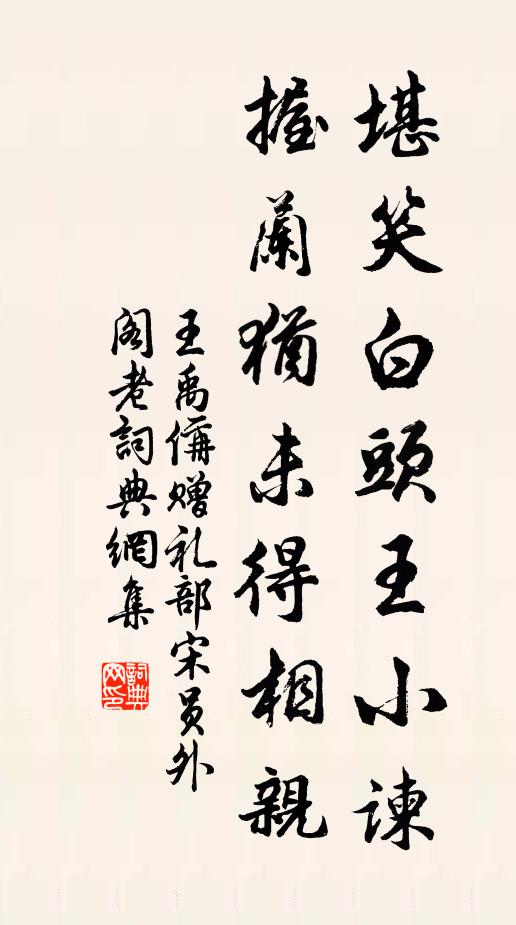 堪笑白頭王小諫
握蘭猶未得相親
王禹偁贈礼部宋員外
阁老詞典網集
詞典網印